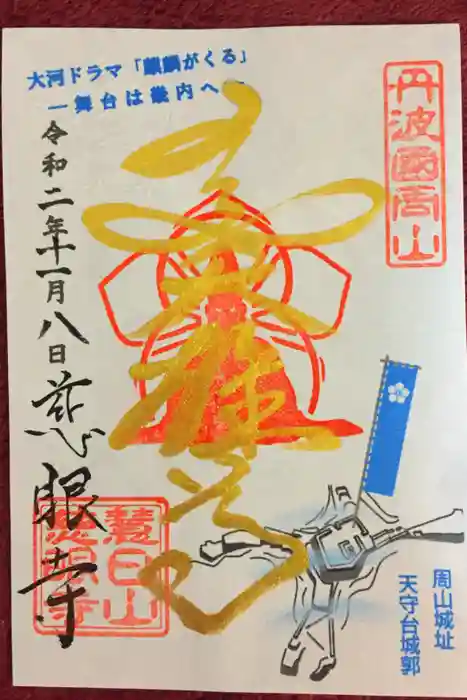 大河ドラマ「麒麟がくる」
―舞台は畿内へ―
丹波國周山
令和二年十一月八日
慈眼寺
慧日山
慈眼寺
周山城址
天守台城郭